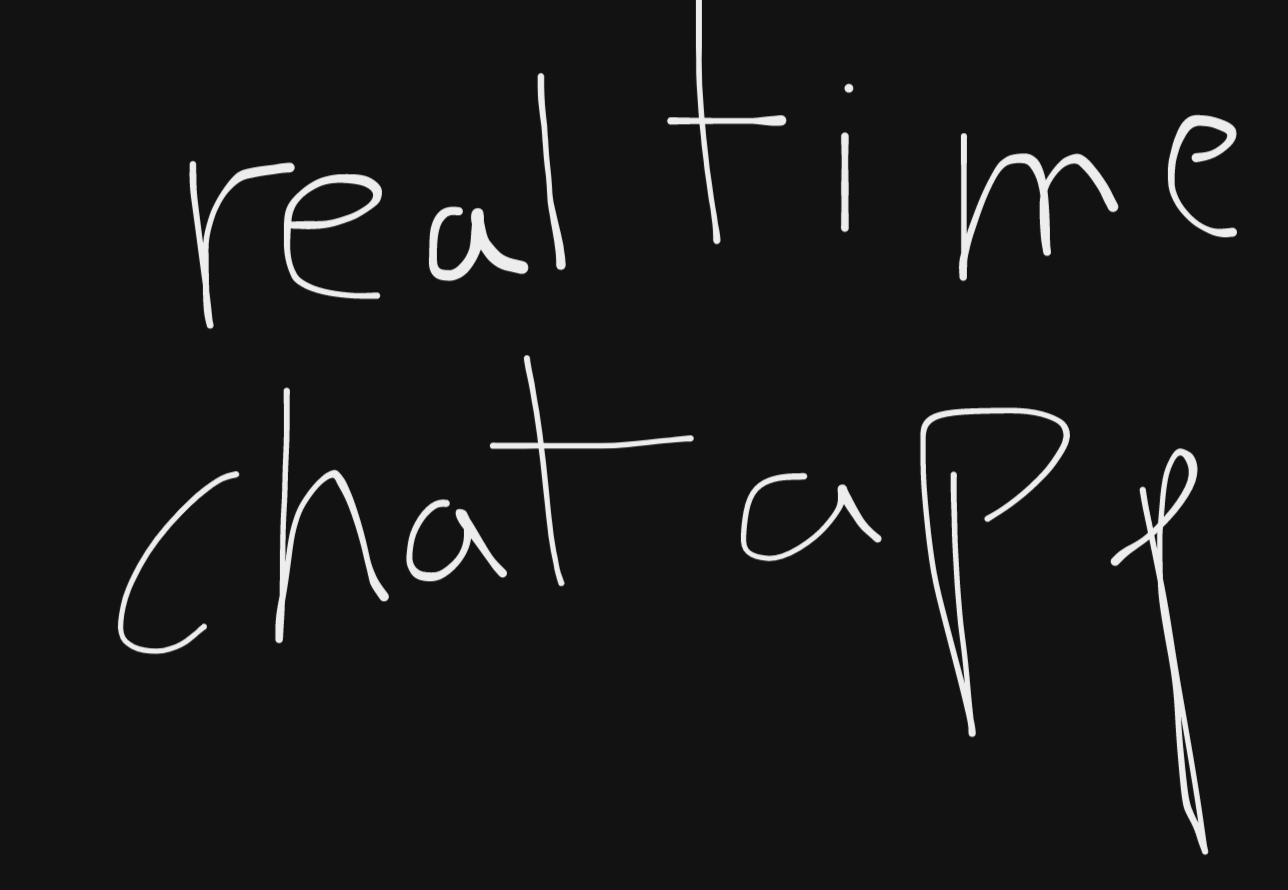 real time
chat app